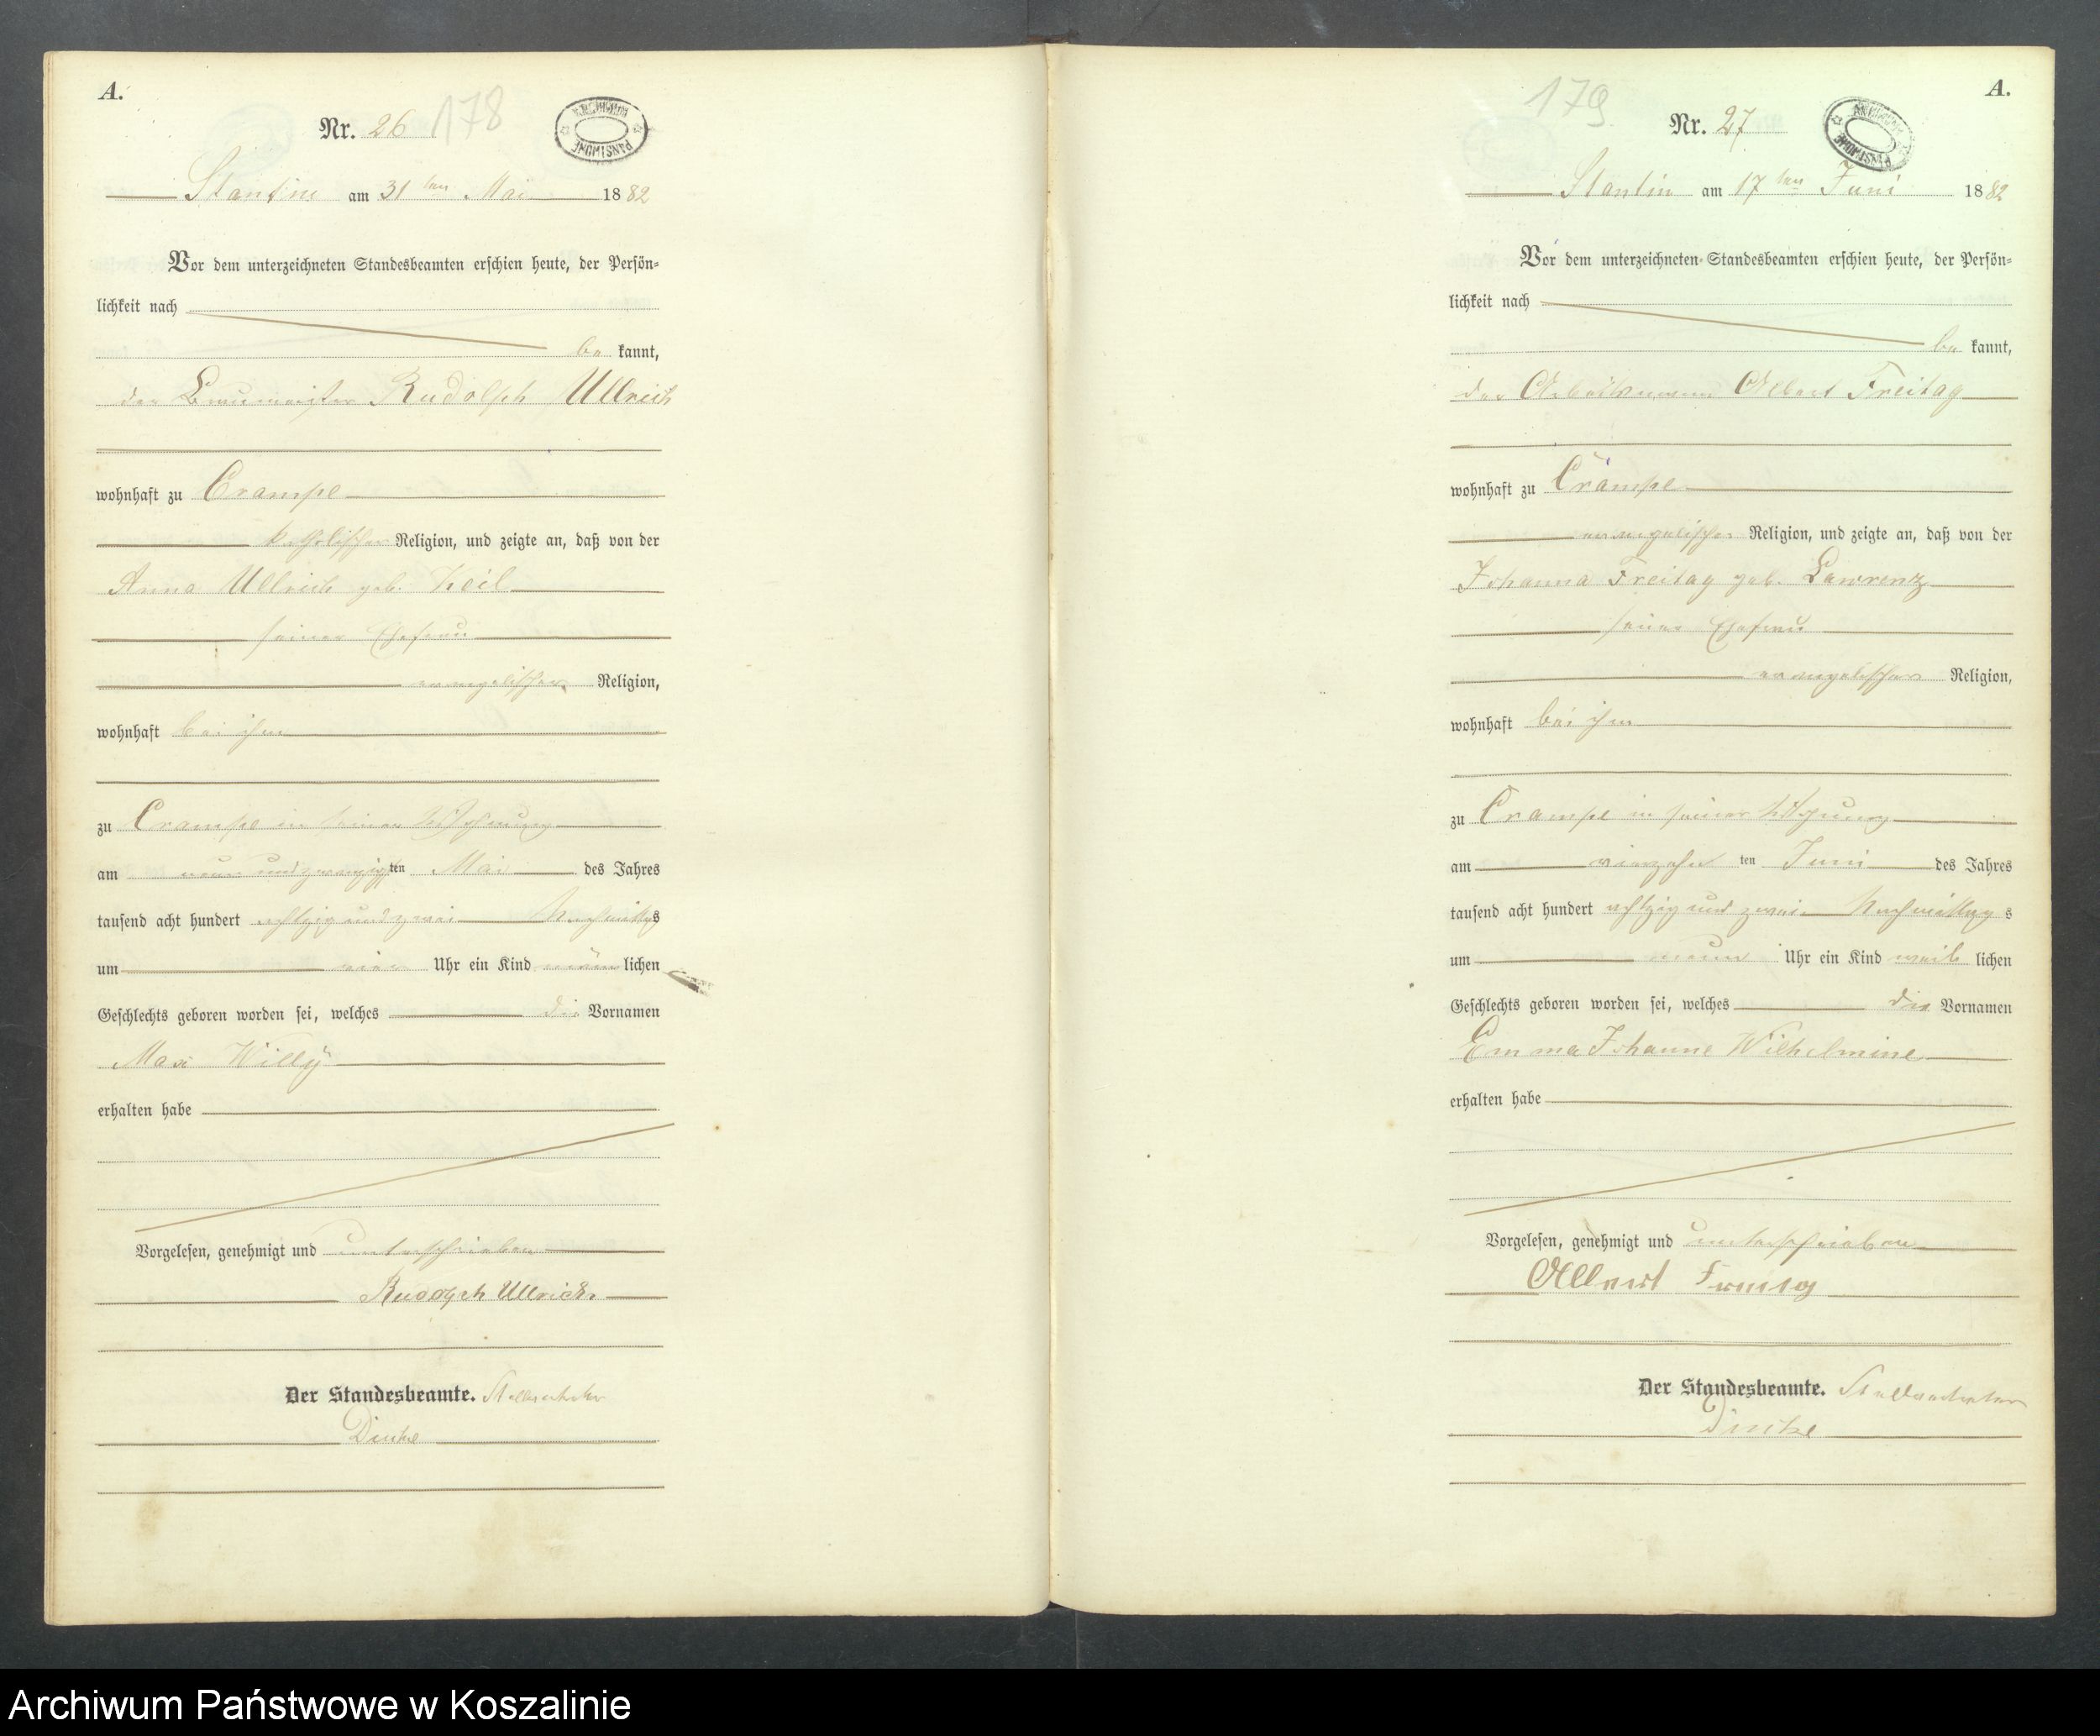 A.
Nr. 26 178
ARCHIWUM PAŃSTWOWE
Stantin am 31 ten Mai 1882
Vor dem unterzeichneten Standesbeamten erschien heute, der Persön-
lichkeit nach
be kannt,
der Braumeister Rudolph Ullrich
wohnhaft zu Crampe
katholischer Religion, und zeigte an, daß von der
Anna Ullrich geb. Keil
seiner Ehefrau
evangelischer Religion,
wohnhaft bei ihm
zu Crampe in seiner Wohnung
am neun und zwanzigsten Mai des Jahres
tausend acht hundert achtzig und zwei Nachmittags
um vier Uhr ein Kind männlichen
Geschlechts geboren worden sei, welches die Vornamen
Max Willy
erhalten habe
Vorgelesen, genehmigt und unterschrieben
Rudolph Ullrich
Der Standesbeamte. Stellvertreter
A.
179
Nr. 27
ARCHIWUM PAŃSTWOWE
Stantin am 17 ten Juni 1882
Vor dem unterzeichneten Standesbeamten erschien heute, der Persön-
lichkeit nach
be kannt,
der Arbeitsmann Albert Freitag
wohnhaft zu Crampe
evangelischer Religion, und zeigte an, daß von der
Johanna Freitag geb. Lawrenz
seiner Ehefrau
evangelischer Religion,
wohnhaft bei ihm
zu Crampe in seiner Wohnung
am vierzehn ten Juni des Jahres
tausend acht hundert achtzig und zwei Nachmittag s
um neun Uhr ein Kind weib lichen
Geschlechts geboren worden sei, welches die Vornamen
Emma Johanne Wilhelmine
erhalten habe
Vorgelesen, genehmigt und unterschrieben
Albert Freitag
Der Standesbeamte. Stellvertreter
Archiwum Państwowe w Koszalinie